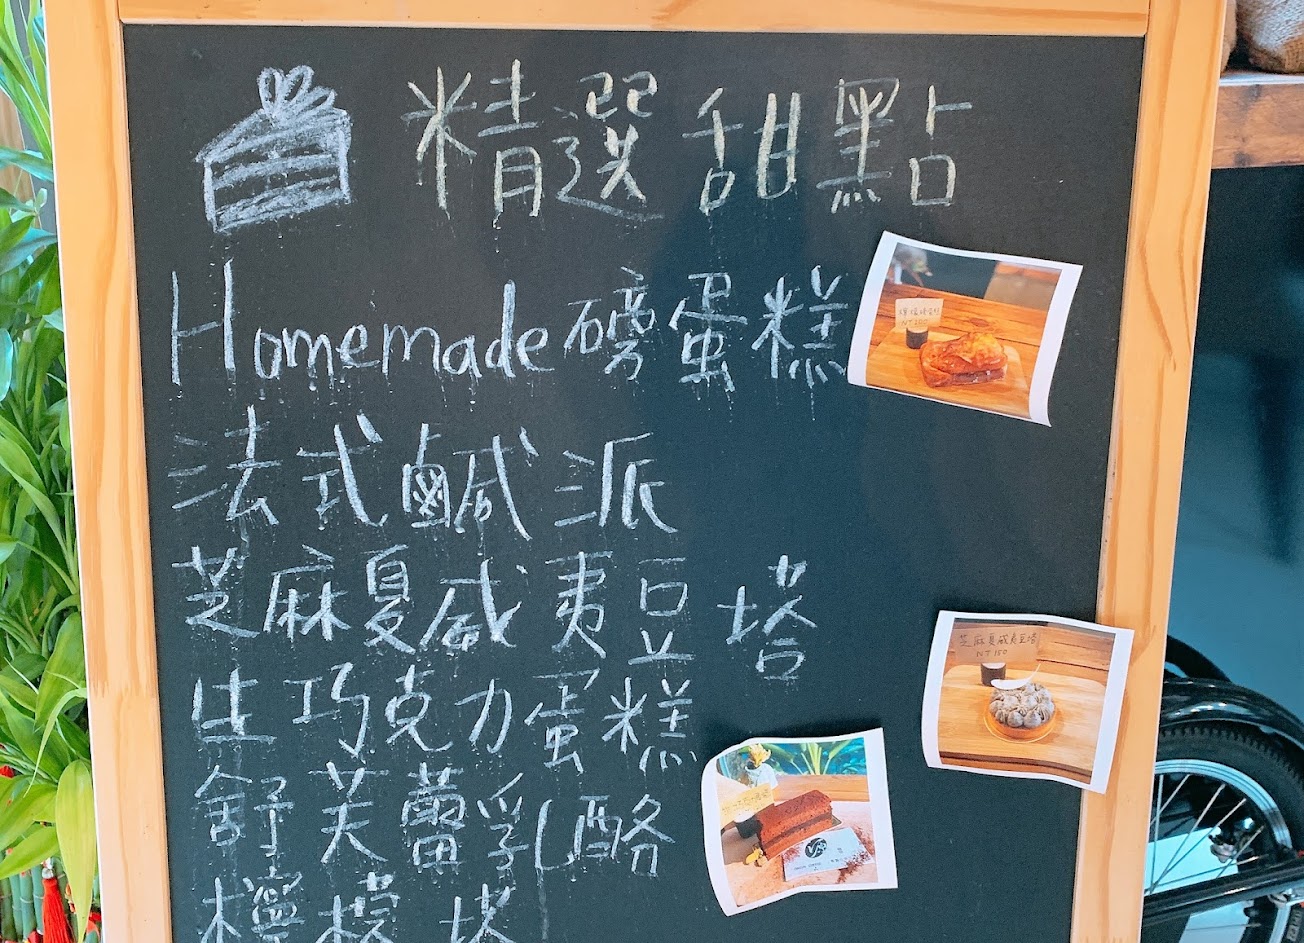 精選甜點
Homemade磅蛋糕
法式鹹派
芝麻夏威夷豆塔
生巧克力蛋糕
舒芙蕾乳酪
檸檬塔
芝麻夏威夷豆塔
NT 180